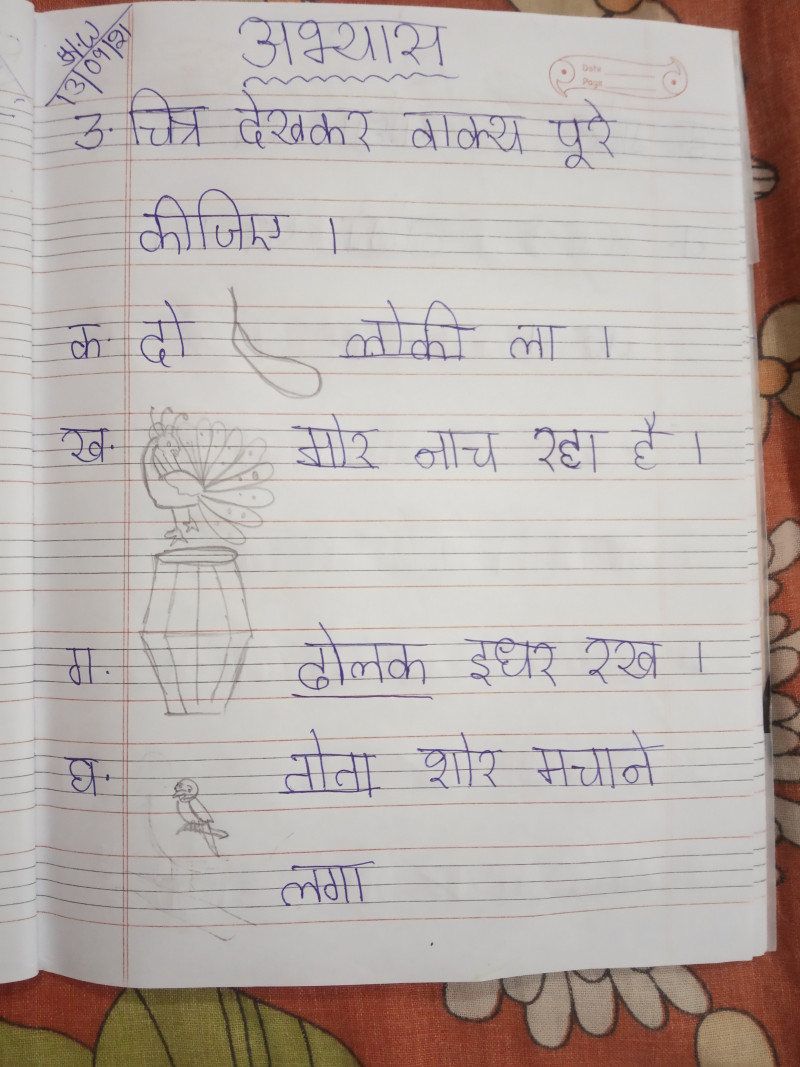 अभ्यास
H.W
13/09/21
Date
Page
3. चित्र देखकर वाक्य पूरे
कीजिए ।
क. दो लोकी ला ।
ख. मोर नाच रहा है ।
ग. ढोलक इधर रख ।
घ. तोता शोर मचाने
लगा